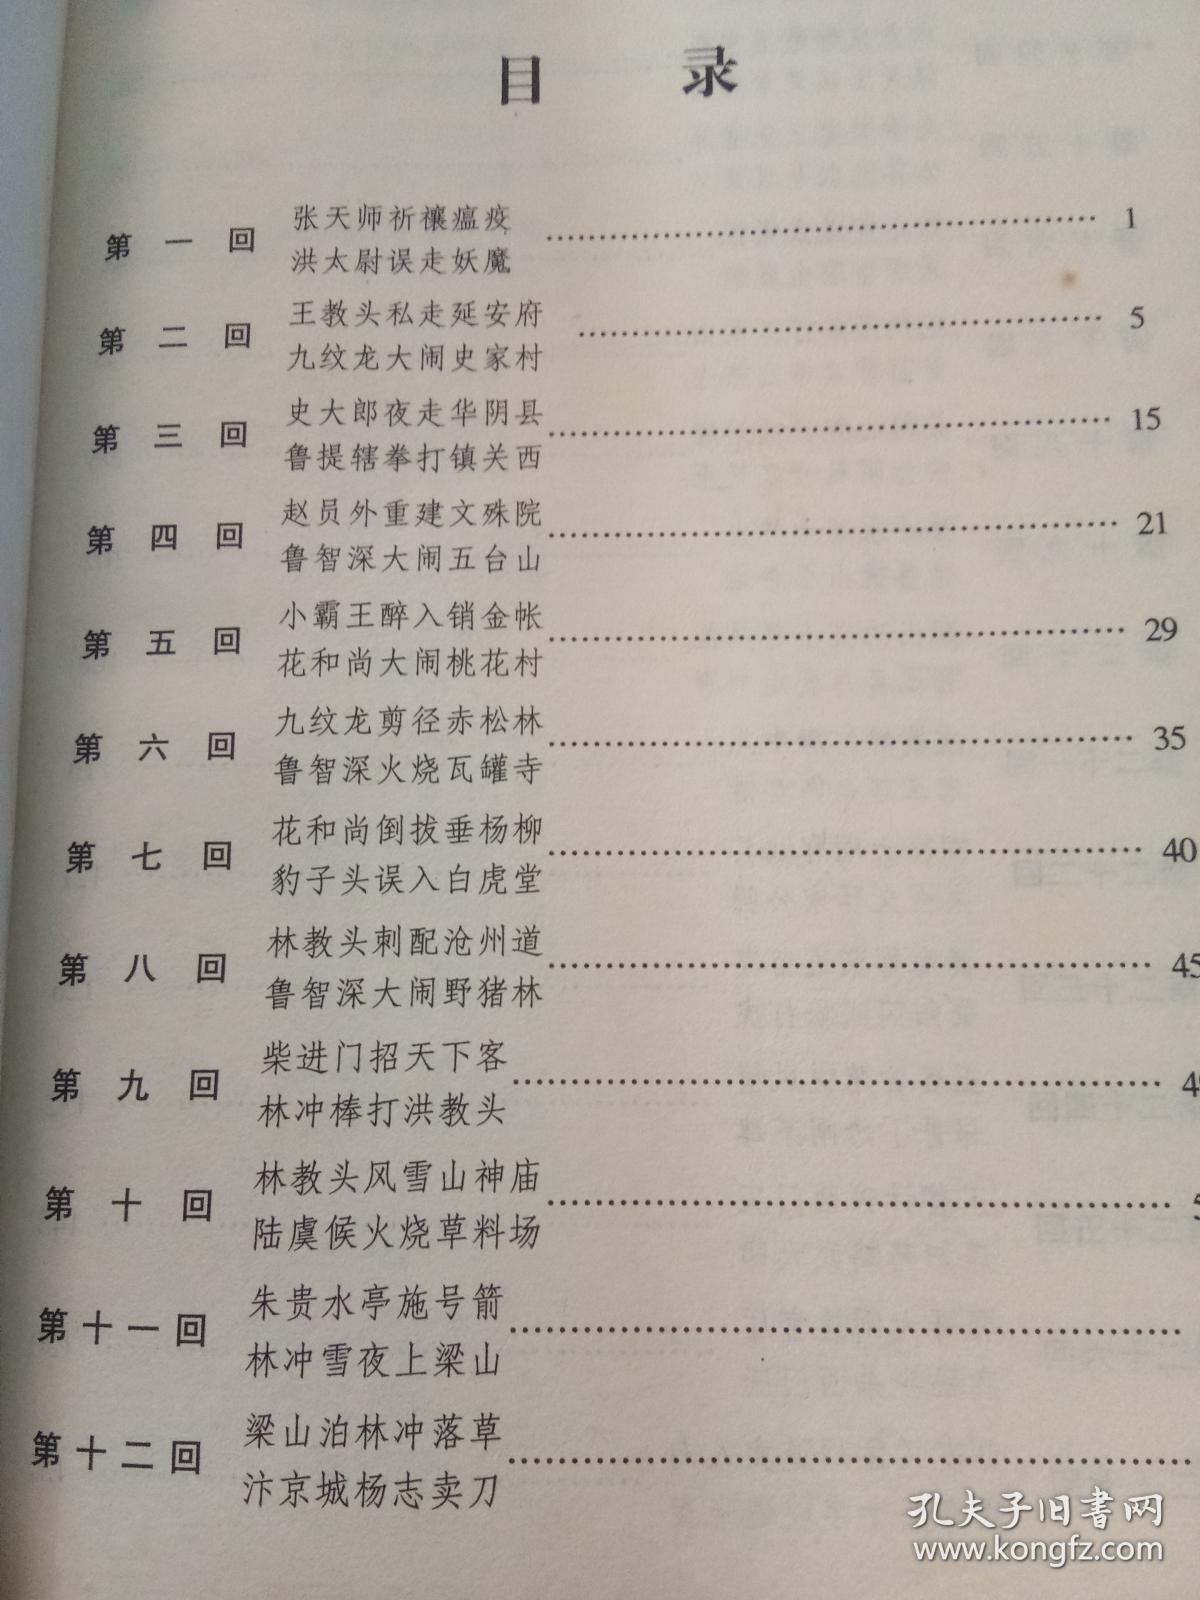 目 录
第一回 张天师祈禳瘟疫
洪太尉误走妖魔 1
第二回 王教头私走延安府
九纹龙大闹史家村 5
第三回 史大郎夜走华阴县
鲁提辖拳打镇关西 15
第四回 赵员外重建文殊院
鲁智深大闹五台山 21
第五回 小霸王醉入销金帐
花和尚大闹桃花村 29
第六回 九纹龙剪径赤松林
鲁智深火烧瓦罐寺 35
第七回 花和尚倒拔垂杨柳
豹子头误入白虎堂 40
第八回 林教头刺配沧州道
鲁智深大闹野猪林 45
第九回 柴进门招天下客
林冲棒打洪教头
第十回 林教头风雪山神庙
陆虞候火烧草料场
第十一回 朱贵水亭施号箭
林冲雪夜上梁山
第十二回 梁山泊林冲落草
汴京城杨志卖刀
孔夫子旧书网
www.kongfz.com